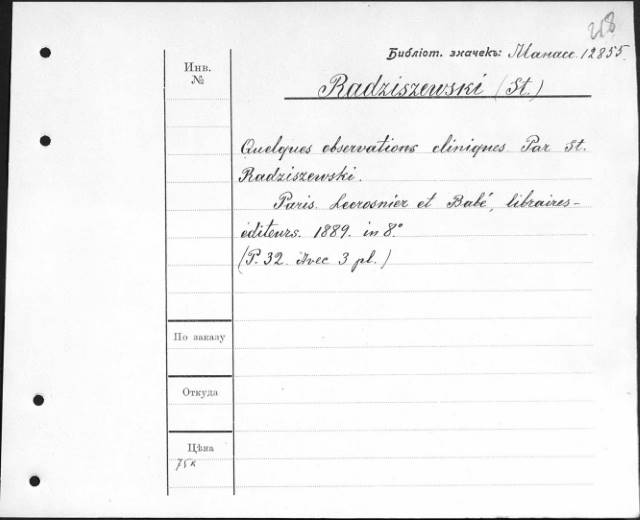 218
Библіот. значекъ: Манасе. 12855.
Инв.
№
Radziszewski (St.)
Quelques observations cliniques Par St.
Radziszewski.
Paris. Lecrosnier et Babé, libraires-
éditeurs. 1889. in 8.º
(P. 32. Avec 3 pl.)
По заказу
Откуда
Цѣна
75к